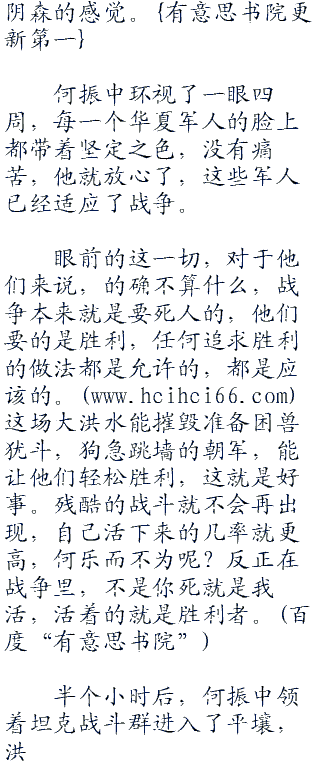 阴森的感觉。{有意思书院更
新第一}
何振中环视了一眼四
周，每一个华夏军人的脸上
都带着坚定之色，没有痛
苦，他就放心了，这些军人
已经适应了战争。
眼前的这一切，对于他
们来说，的确不算什么，战
争本来就是要死人的，他们
要的是胜利，任何追求胜利
的做法都是允许的，都是应
该的。(www.hcihci66.com)
这场大洪水能摧毁准备困兽
犹斗，狗急跳墙的朝军，能
让他们轻松胜利，这就是好
事。残酷的战斗就不会再出
现，自己活下来的几率就更
高，何乐而不为呢？反正在
战争里，不是你死就是我
活，活着的就是胜利者。(百
度“有意思书院”)
半个小时后，何振中领
着坦克战斗群进入了平壤，
洪